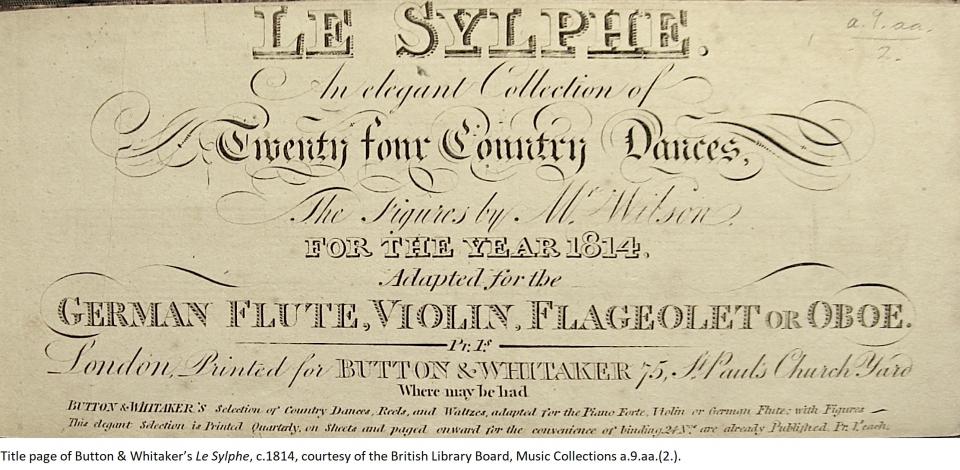 LE SYLPHE.
a.9.aa.
2.
An elegant Collection of
Twenty four Country Dances,
The Figures by Mr. Wilson.
FOR THE YEAR 1814.
Adapted for the
GERMAN FLUTE, VIOLIN, FLAGEOLET OR OBOE.
Pr. 1s
London, Printed for BUTTON & WHITAKER 75, St. Paul's Church Yard
Where may be had
BUTTON & WHITAKER'S Selection of Country Dances, Reels, and Waltzes, adapted for the Piano Forte, Violin or German Flute; with Figures
This elegant Selection is Printed Quarterly, on Sheets and paged onward for the convenience of binding. 24 Nos. are already Published. Pr. 1s each.
Title page of Button & Whitaker's Le Sylphe, c.1814, courtesy of the British Library Board, Music Collections a.9.aa.(2.).